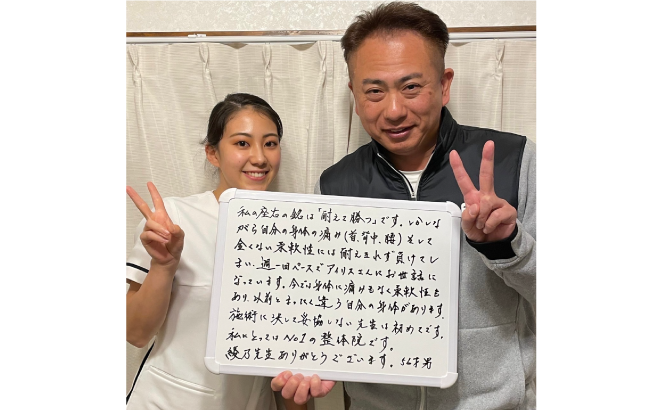 私の座右の銘は「耐えて勝つ」です。しかしな
がら自分の身体の痛み(首、背中、腰)そして
全くない柔軟性には耐えきれず負けてし
まい、週一回ペースでアイリスさんにお世話に
なっています。今では身体に痛みもなく柔軟性も
あり、以前とまったく違う自分の身体があります。
施術に決して妥協しない先生は初めてです。
私にとってはNo1の整体院です。
綾乃先生ありがとうございます。56才男